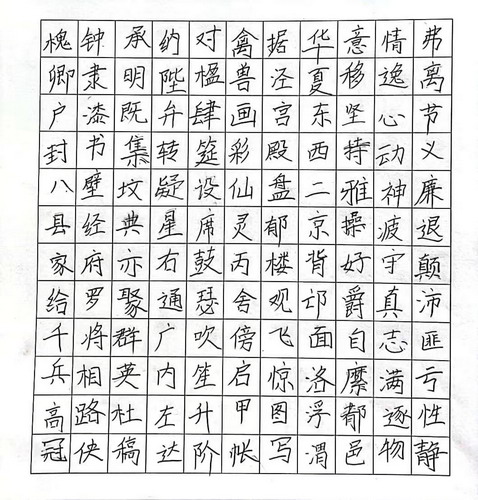 弗离节义廉退颠沛匪亏性静
情逸心动神疲守真志满逐物
意移坚持雅操好爵自縻都邑
华夏东西二京背邙面洛浮渭
据泾宫殿盘郁楼观飞惊图写
禽兽画彩仙灵丙舍傍启甲帐
对楹肆筵设席鼓瑟吹笙升阶
纳陛弁转疑星右通广内左达
承明既集坟典亦聚群英杜稿
钟隶漆书壁经府罗将相路侠
槐卿户封八县家给千兵高冠